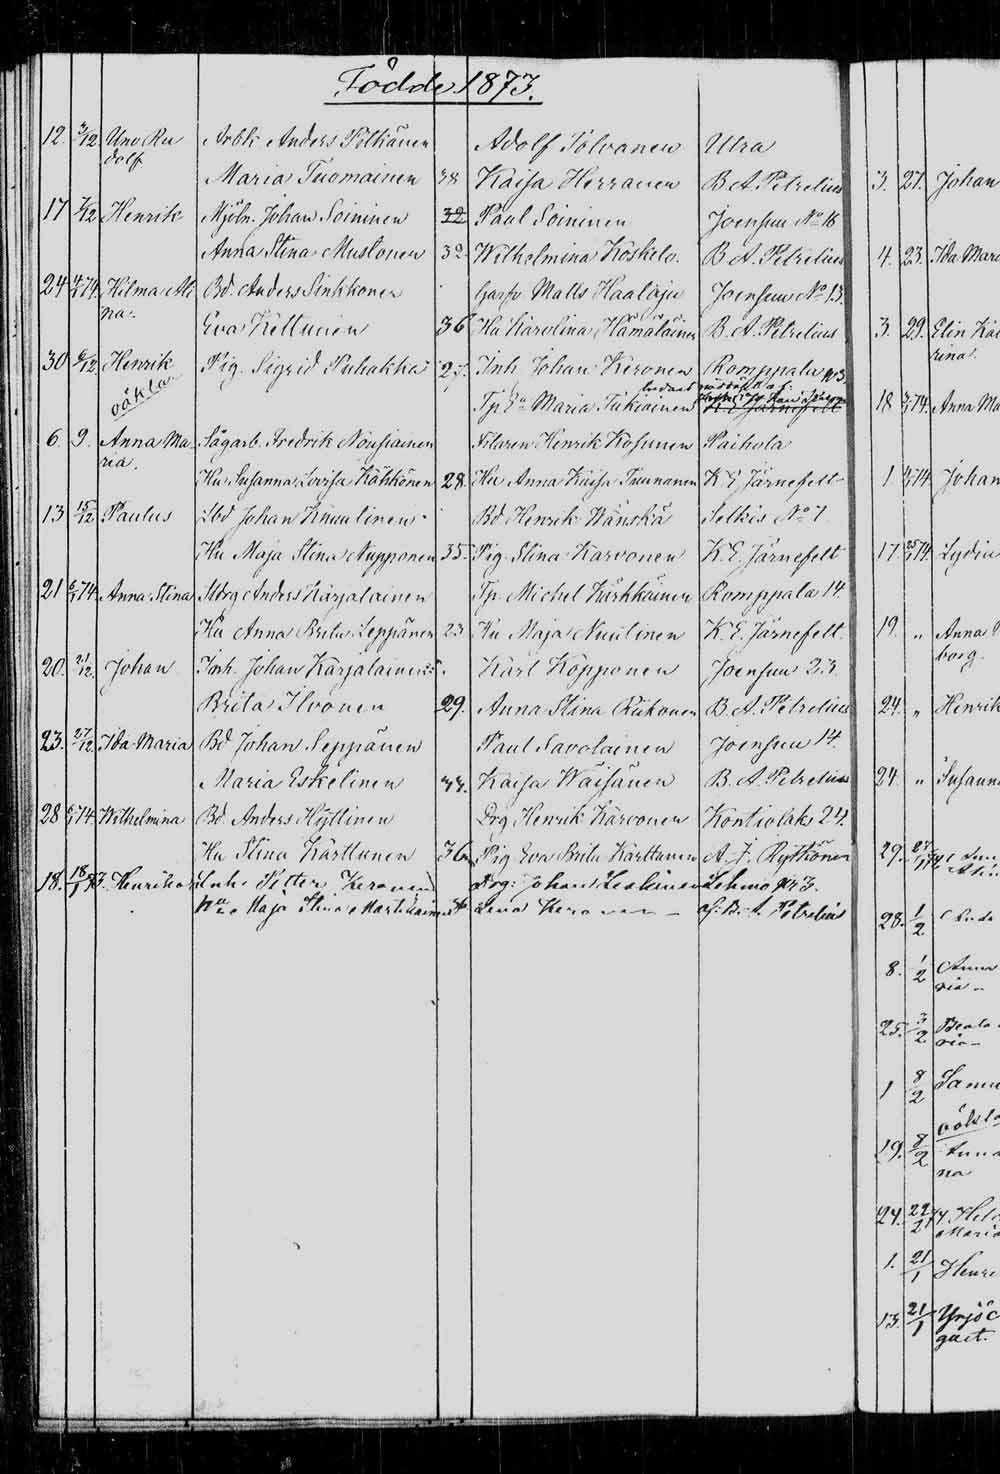 Födde 1873.
12. 3/12. Uno Ru Arbk. Anders Pölkänen Adolf Tolvanen Utra
dolf
Maria Tuomainen 38 Kaisa Herranen B. A. Petrelius
17 /12 Henrik Mjöln. Johan Soininen 32 Paul Soininen Joensuu No 16
Anna Stina Mustonen 32. Wilhelmina Koskelo. B. A. Petrelius
24 74. Hilma Ali Bd. Anders Sinkkonen Garfv. Matts Haalaja Joensuu No 13.
na.
Eva Kettunen 36 Hu Karolina Hämäläinen B. A. Petrelius
30 /12. Henrik Pig. Sigrid Puhakka 27. Inh. Johan Keronen Romppala No 3.
oäkta
Tp. Maria Tukiainen K. E. Järnefelt
6. 9. Anna Ma Sågarb. Fredrik Nousiainen Filaren Henrik Kosunen Paihola
ria.
Hu. Susanna Lovisa Kähkönen 28. Hu Anna Kaisa Tuunanen K. E. Järnefelt
13 15/12 Paulus Sbd Johan Knuutinen Bd Henrik Wänskä Selkis No 7.
Hu Maja Stina Nupponen 35. Pig. Stina Karvonen K. E. Järnefelt
21 6/1 74. Anna Stina Anders Karjalainen Tp. Michel Kärkkäinen Romppala 14.
Hu Anna Brita Leppänen 23 Hu Maja Nuutinen K. E. Järnefelt.
20. 21/12. Johan Inh. Johan Karjalainen Karl Kopponen Joensuu 23.
Brita Ilvonen 29. Anna Stina Riikonen B. A. Petrelius
23. 27/12. Ida Maria Bd Johan Seppänen Paul Savolainen Joensuu 14.
Maria Eskelinen 44. Kaisa Wäisänen B. A. Petrelius
28 6/1 74. Wilhelmina Bd. Anders Hyttinen Drg Henrik Karvonen Kontiolaks 24.
Hu Stina Karttunen 36. Pig. Eva Brita Karttunen A. F. Rytkönen
18. 18/1 73. Henrika Inh. Petter Keronen Drg: Johan Leskinen Lehmo No 3.
Maja Stina Martikainen Lena Keronen af: B. A. Petrelius
3. 27. Johan
4. 23. Ida Mari
3. 29. Elin Ka
rina.
18 74. Anna Ma
1. 74. Johan
17. 25/1 74. Lydia
19. " Anna
borg.
24. " Henrik
24. " Susann
29. 27/1
28. 1/2
8. 1/2 Anna
ria
25. 3/2 Beata
ria
1 8/2 Samu
oäkta
19. 8/2 Anna
na
24. 22/2 Hel
Maria
1. 21/1 Henri
13. 21/1 Yrjö